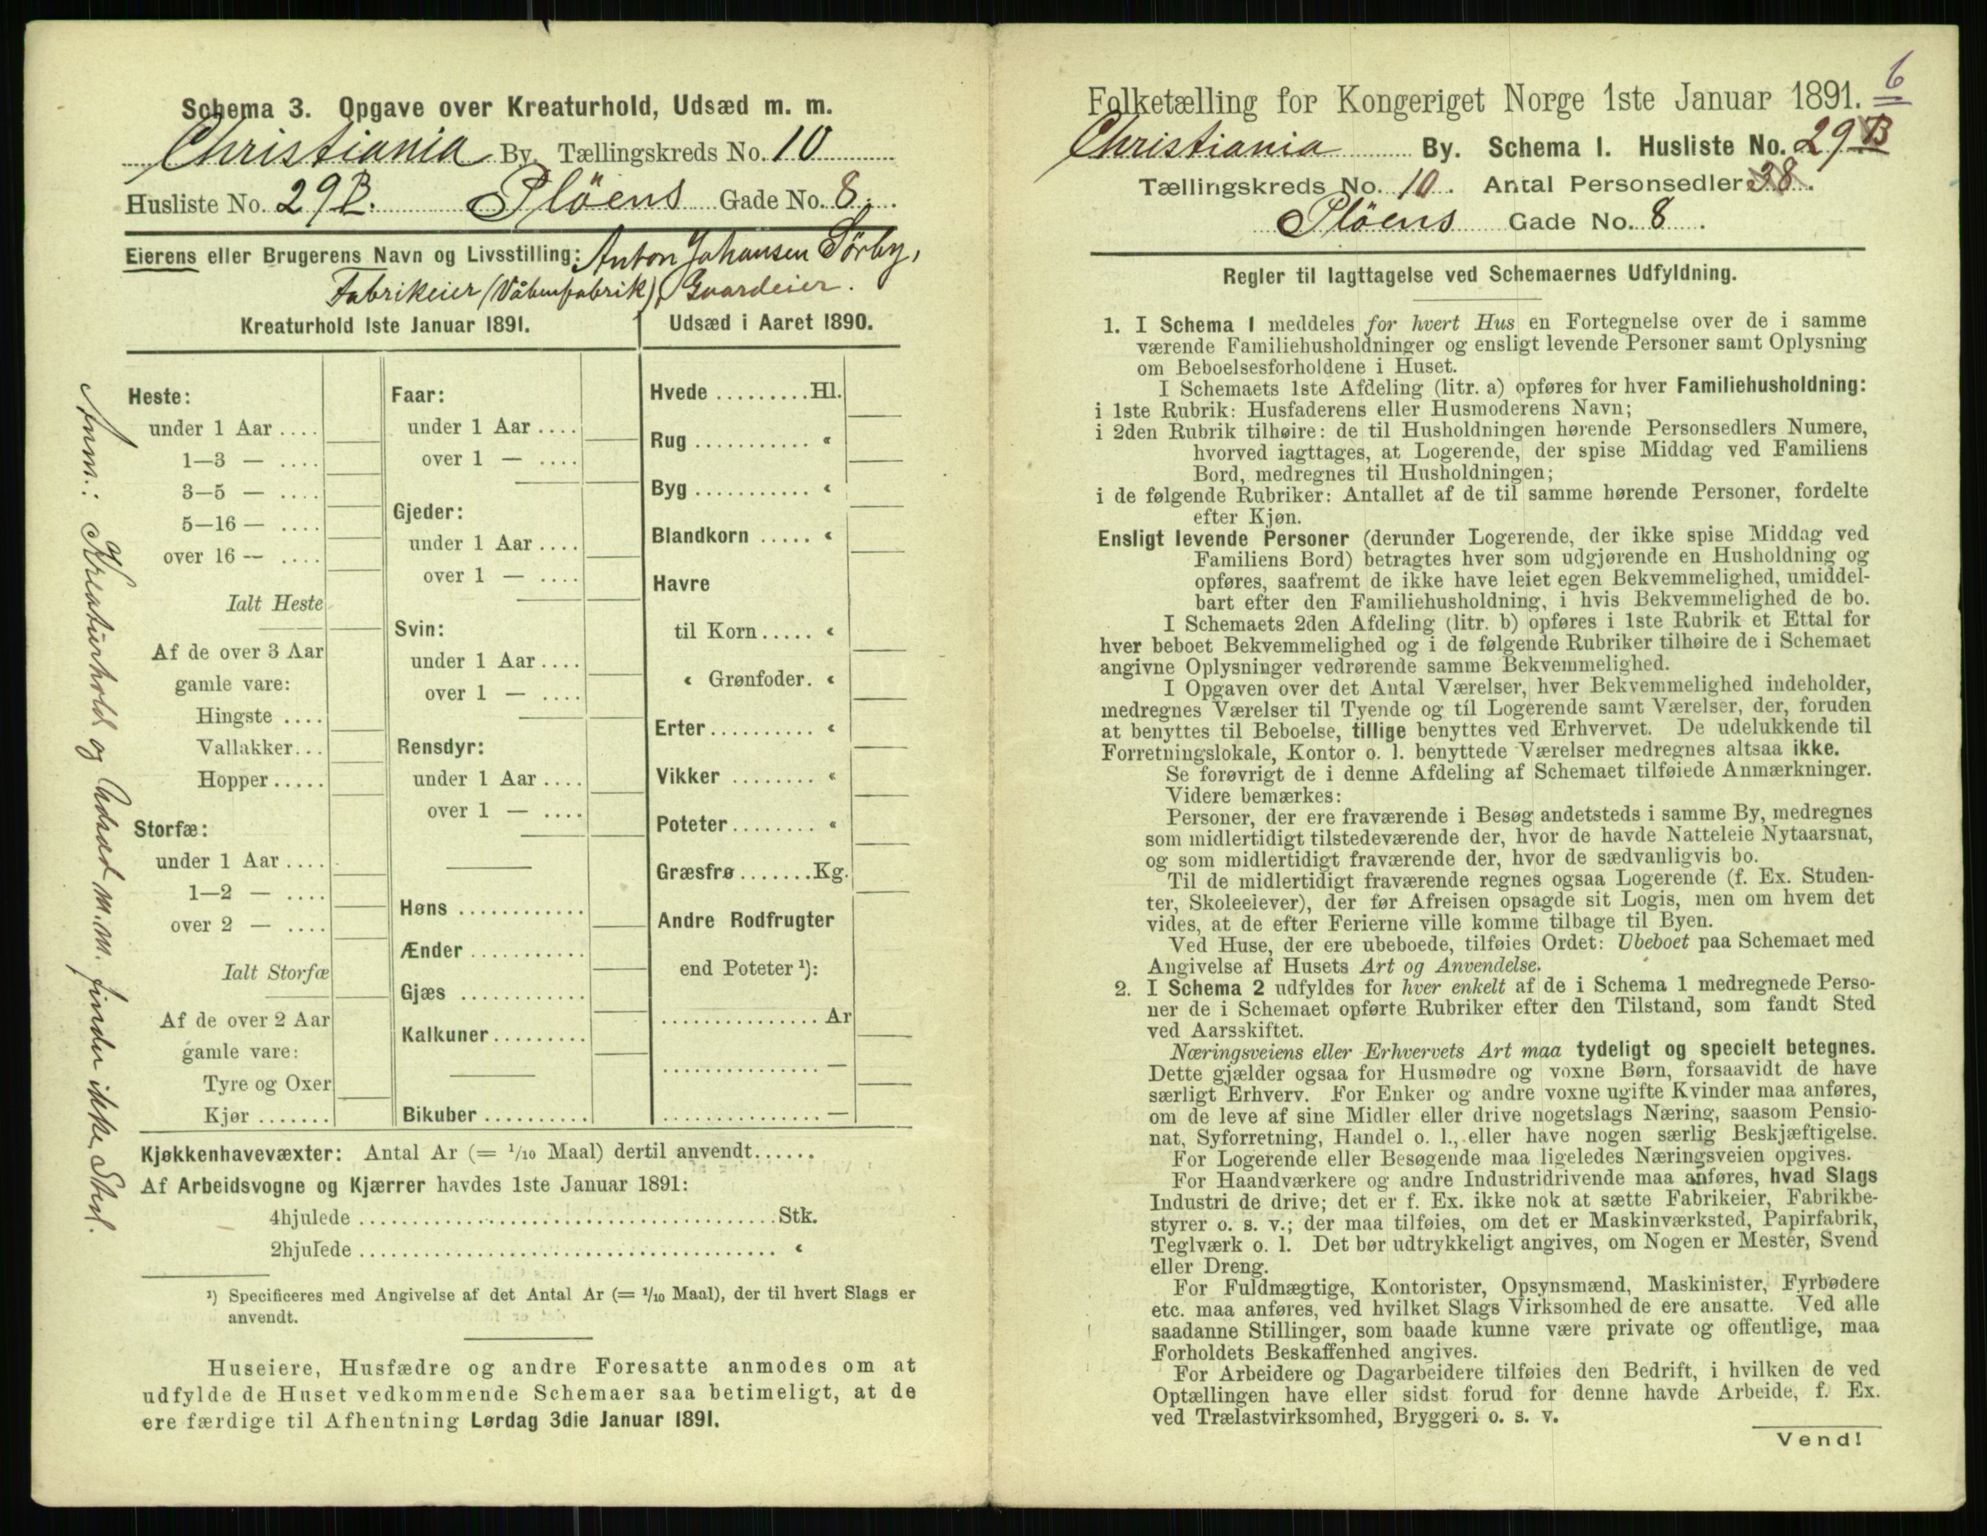 Schema 3. Opgave over Kreaturhold, Udsæd m. m.
Christiania By, Tællingskreds No. 10
Husliste No. 29B. Pløens Gade No. 8.
Eierens eller Brugerens Navn og Livsstilling: Anton Johansen Sørby,
Fabrikeier (Våbenfabrik), Gaardeier.
Kreaturhold 1ste Januar 1891.
Heste:
under 1 Aar ....
1—3 — ....
3—5 — ....
5—16 — ....
over 16 — ....
Ialt Heste
Af de over 3 Aar
gamle vare:
Hingste ....
Vallakker...
Hopper.....
Storfæ:
under 1 Aar ....
1—2 — ....
over 2 — ....
Ialt Storfæ
Af de over 2 Aar
gamle vare:
Tyre og Oxer
Kjør.......
Faar:
under 1 Aar ....
over 1 — ....
Gjeder:
under 1 Aar ....
over 1 — ....
Svin:
under 1 Aar ....
over 1 — ....
Rensdyr:
under 1 Aar ....
over 1 — ....
Høns............
Ænder...........
Gjæs............
Kalkuner.........
Bikuber..........
Udsæd i Aaret 1890.
Hvede.........Hl.
Rug........... «
Byg........... «
Blandkorn ..... «
Havre
til Korn..... «
« Grønfoder. «
Erter.......... «
Vikker ........ «
Poteter........ «
Græsfrø.......Kg.
Andre Rodfrugter
end Poteter ¹):
............... Ar
............... —
............... —
Kjøkkenhavevæxter: Antal Ar (= 1/10 Maal) dertil anvendt......
Af Arbeidsvogne og Kjærrer havdes 1ste Januar 1891:
4hjulede ........................................ Stk.
2hjulede ........................................ «
¹) Specificeres med Angivelse af det Antal Ar (= 1/10 Maal), der til hvert Slags er
anvendt.
Huseiere, Husfædre og andre Foresatte anmodes om at
udfylde de Huset vedkommende Schemaer saa betimeligt, at de
ere færdige til Afhentning Lørdag 3die Januar 1891.
Anm.: Kreaturhold og Udsæd m.m. finder ikke Sted.
6
Folketælling for Kongeriget Norge 1ste Januar 1891.
Christiania By. Schema 1. Husliste No. 29B
Tællingskreds No. 10. Antal Personsedler 38.
Pløens Gade No. 8.
Regler til Iagttagelse ved Schemaernes Udfyldning.
1. I Schema 1 meddeles for hvert Hus en Fortegnelse over de i samme
værende Familiehusholdninger og ensligt levende Personer samt Oplysning
om Beboelsesforholdene i Huset.
I Schemaets 1ste Afdeling (litr. a) opføres for hver Familiehusholdning:
i 1ste Rubrik: Husfaderens eller Husmoderens Navn;
i 2den Rubrik tilhøire: de til Husholdningen hørende Personsedlers Numere,
hvorved iagttages, at Logerende, der spise Middag ved Familiens
Bord, medregnes til Husholdningen;
i de følgende Rubriker: Antallet af de til samme hørende Personer, fordelte
efter Kjøn.
Ensligt levende Personer (derunder Logerende, der ikke spise Middag ved
Familiens Bord) betragtes hver som udgjørende en Husholdning og
opføres, saafremt de ikke have leiet egen Bekvemmelighed, umiddel-
bart efter den Familiehusholdning, i hvis Bekvemmelighed de bo.
I Schemaets 2den Afdeling (litr. b) opføres i 1ste Rubrik et Ettal for
hver beboet Bekvemmelighed og i de følgende Rubriker tilhøire de i Schemaet
angivne Oplysninger vedrørende samme Bekvemmelighed.
I Opgaven over det Antal Værelser, hver Bekvemmelighed indeholder,
medregnes Værelser til Tyende og til Logerende samt Værelser, der, foruden
at benyttes til Beboelse, tillige benyttes ved Erhvervet. De udelukkende til
Forretningslokale, Kontor o. l. benyttede Værelser medregnes altsaa ikke.
Se forøvrigt de i denne Afdeling af Schemaet tilføiede Anmærkninger.
Videre bemærkes:
Personer, der ere fraværende i Besøg andetsteds i samme By, medregnes
som midlertidigt tilstedeværende der, hvor de havde Natteleie Nytaarsnat,
og som midlertidigt fraværende der, hvor de sædvanligvis bo.
Til de midlertidigt fraværende regnes ogsaa Logerende (f. Ex. Studen-
ter, Skoleelever), der før Afreisen opsagde sit Logis, men om hvem det
vides, at de efter Ferierne ville komme tilbage til Byen.
Ved Huse, der ere ubeboede, tilføies Ordet: Ubeboet paa Schemaet med
Angivelse af Husets Art og Anvendelse.
2. I Schema 2 udfyldes for hver enkelt af de i Schema 1 medregnede Perso-
ner de i Schemaet opførte Rubriker efter den Tilstand, som fandt Sted
ved Aarsskiftet.
Næringsveiens eller Erhvervets Art maa tydeligt og specielt betegnes.
Dette gjælder ogsaa for Husmødre og voxne Børn, forsaavidt de have
særligt Erhverv. For Enker og andre voxne ugifte Kvinder maa anføres,
om de leve af sine Midler eller drive nogetslags Næring, saasom Pensio-
nat, Syforretning, Handel o. l., eller have nogen særlig Beskjæftigelse.
For Logerende eller Besøgende maa ligeledes Næringsveien opgives.
For Haandværkere og andre Industridrivende maa anføres, hvad Slags
Industri de drive; det er f. Ex. ikke nok at sætte Fabrikeier, Fabrikbe-
styrer o. s. v.; der maa tilføies, om det er Maskinværksted, Papirfabrik,
Teglværk o. l. Det bør udtrykkeligt angives, om Nogen er Mester, Svend
eller Dreng.
For Fuldmægtige, Kontorister, Opsynsmænd, Maskinister, Fyrbødere
etc. maa anføres, ved hvilket Slags Virksomhed de ere ansatte. Ved alle
saadanne Stillinger, som baade kunne være private og offentlige, maa
Forholdets Beskaffenhed angives.
For Arbeidere og Dagarbeidere tilføies den Bedrift, i hvilken de ved
Optællingen have eller sidst forud for denne havde Arbeide, f. Ex.
ved Trælastvirksomhed, Bryggeri o. s. v.
Vend!